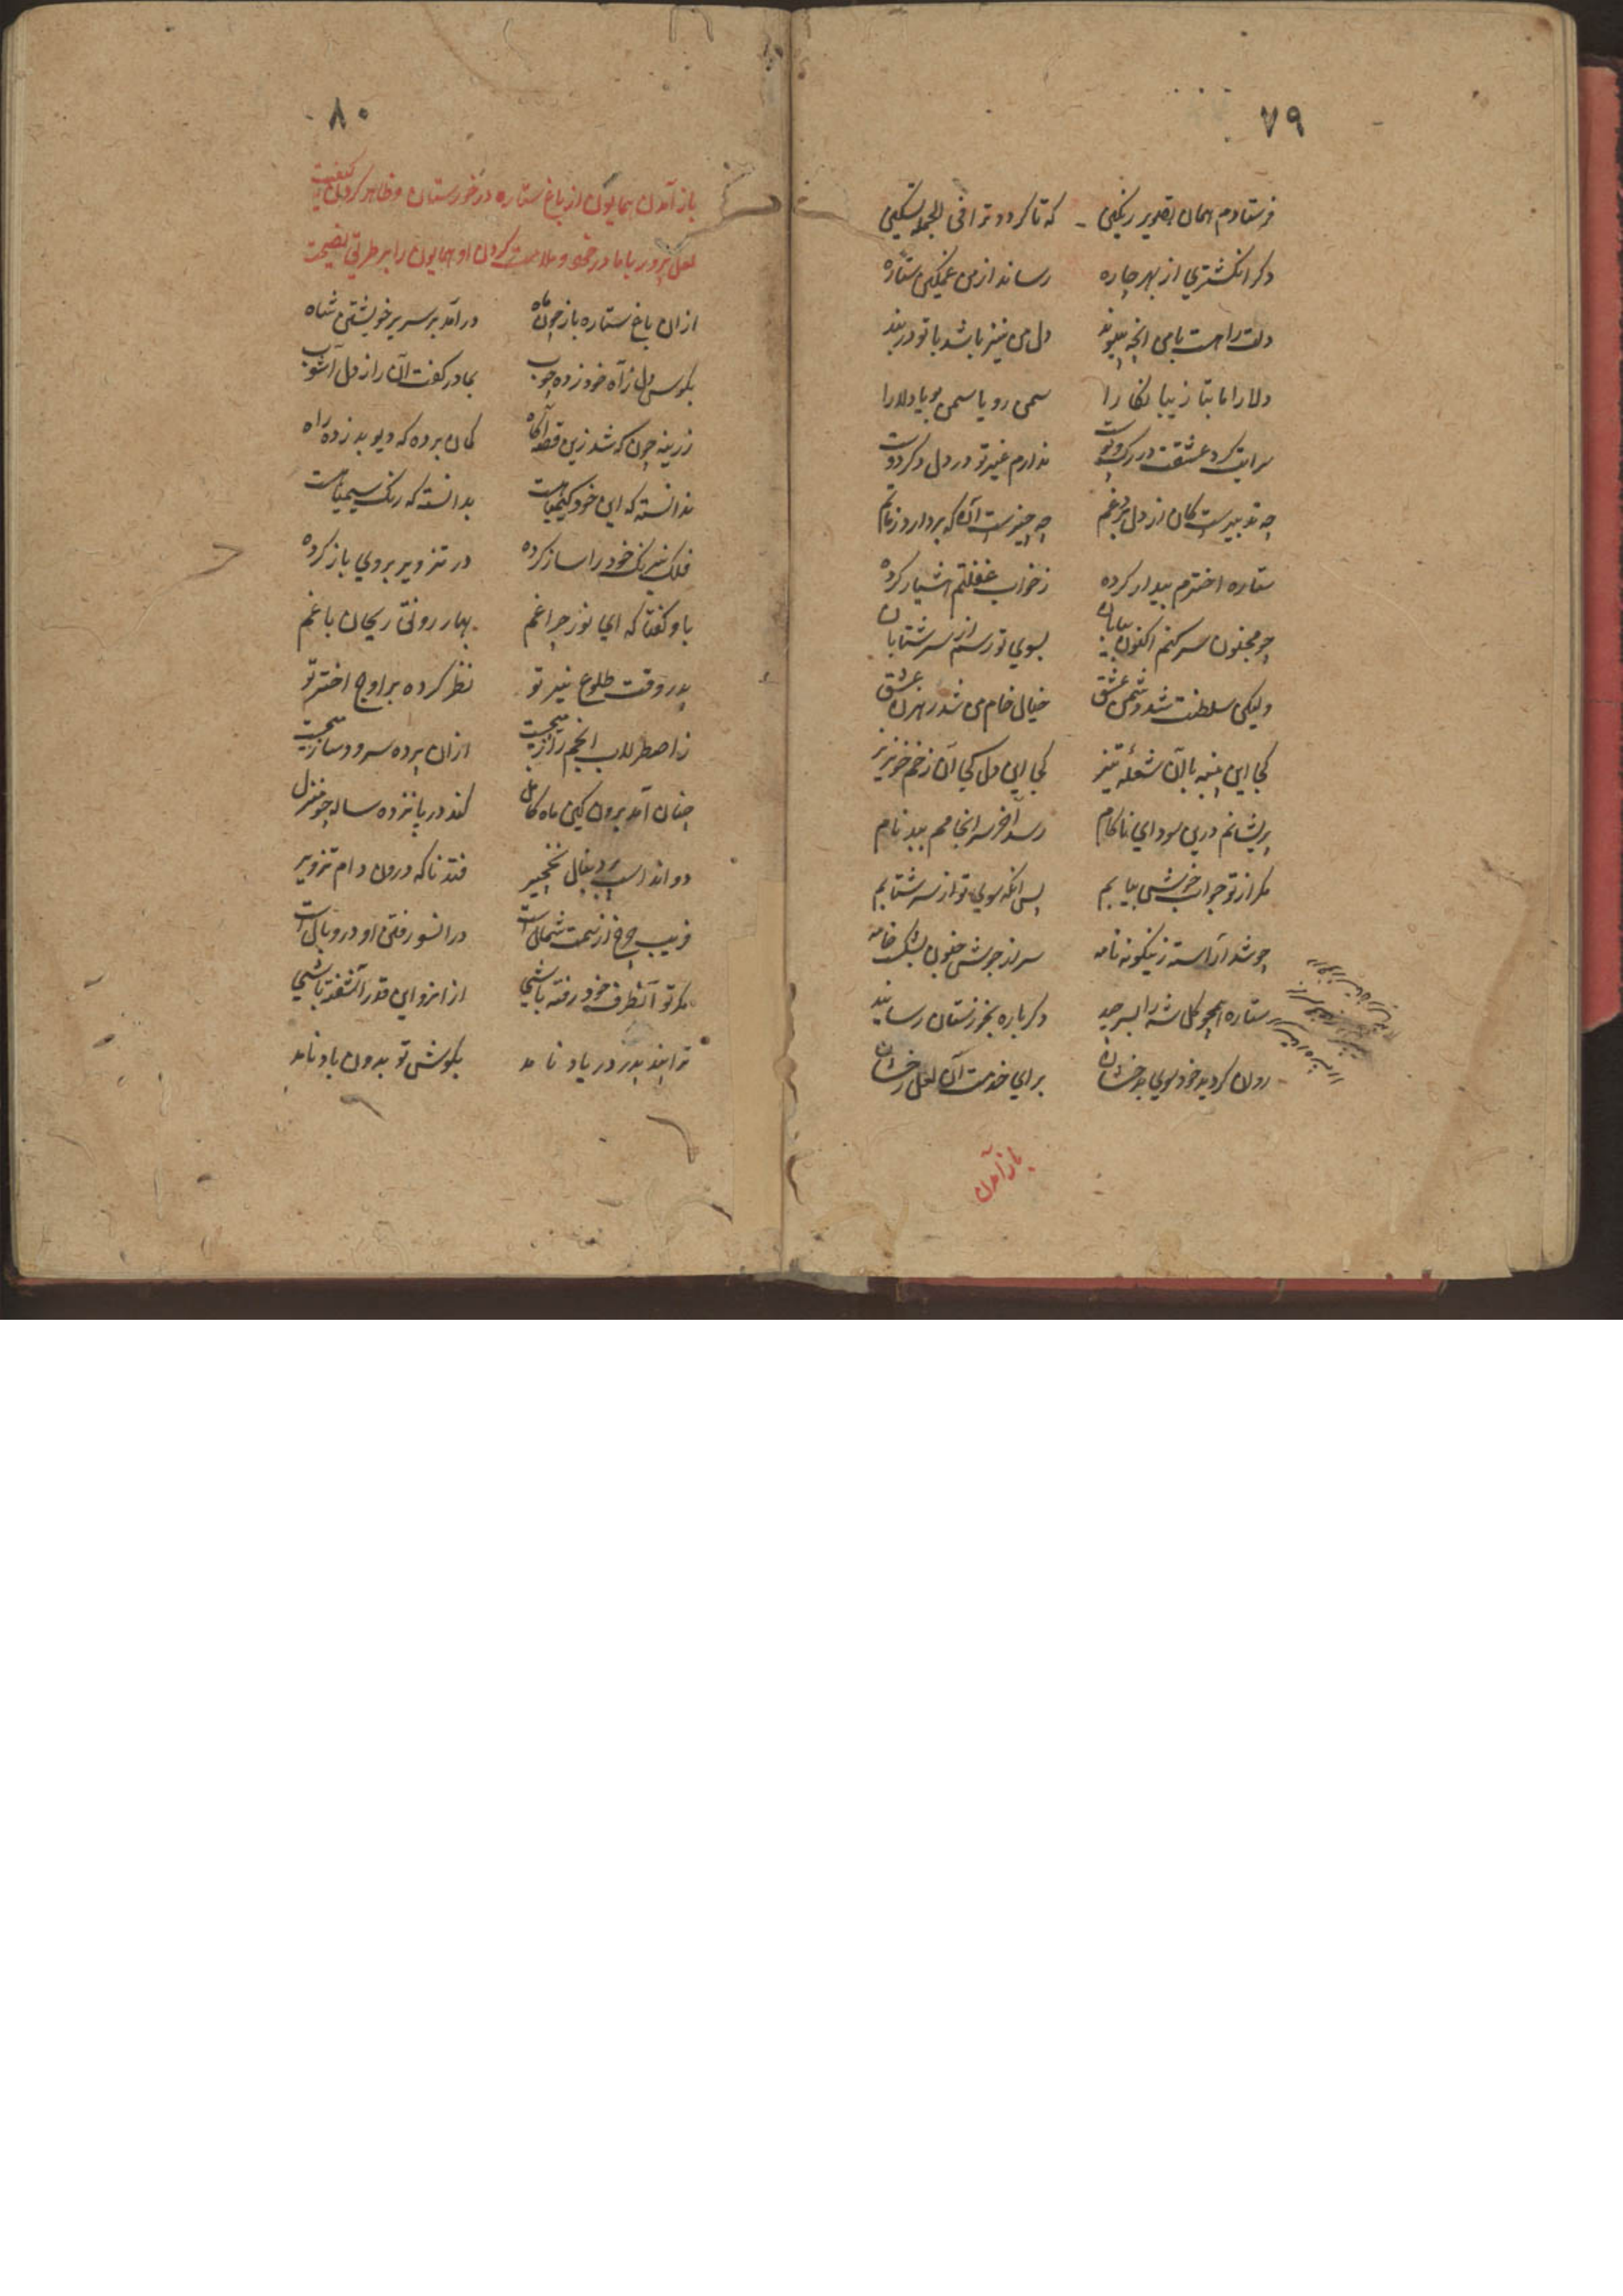 ۷۹
فرستادم همان تصویر رنگین که تا گردد ترا فی الجمله تسکین
دکر انکشتری از بهر چاره رساند از من غمکین ستاره
دلت را هست با من انچه پیوند دل من نیز باشد با تو در بند
دلارا ما بتا زیبا نکارا سمن رویا سمن بویا دلارا
سرایت کرد عشقت در رک و پوست ندارم غیر تو در دل دکر دوست
چه تدبیرست کان از دل برد غم چه چیزست آنکه بردارد زمانم
ستاره اخترم بیدار کرده زخواب غفلتم هشیار کرده
چو مجنون سر کنم اکنون بیابان بسوی تو رسم از سر شتابان
ولیکن سلطنت شد دشمن عشق خیال خام من شد رهزن عشق
کجا این پنبه با آن شعله تیز کجا این دل کجا آن زخم خونریز
پریشانم درین سودای ناکام رسد آخر سرانجامم ببد نام
مکر از تو جواب خوش بیابم پس انکه سوی تو از سر شتابم
چو شد آراسته زینکونه نامه سر از جوش جنون بشکست خامه
ستاره همچو کل شه را بسر چید دکر باره بخرزستان رسانید
روان کردید خود سوی بدخشان برای خدمت آن لعل رخشان
باز آمدن
۸۰
باز آمدن همایون از باغ ستاره در خورستان و ظاهر کردن کیفیت
لعل پرور با مادر خود و ملامت کردن او همایون را بر طریق نصیحت
ازان باغ ستاره باز چون ماه در آمد بر سریر خویشتن شاه
بکوس دل ز آه خود زده چوب بمادر کفت آن راز دل آشوب
زرینه چون که شد زین قصه آکاه کمان برده که دیو بد زده راه
ندانسته که این خود کیمیاهست بدانسته که رنک سیمیاهست
فلک نیرنک خود را ساز کرده در تزویر بر وی باز کرده
باو کفتا که ای نور چراغم بهار رونق ریحان باغم
پدر وقت طلوع نیر تو نظر کرده بر اوج اختر تو
ز اصطرلاب انجم راز میجست ازان پرده سرود ساز میجست
چنان آمد برون کین ماه کامل کند در پانزده ساله چو منزل
دواند اسب بر دنبال نخچیر فتد ناکه درون دام تزویر
فریب چرخ از سمت شمال است در انسو رفتن او در وبال است
مکر تو آنطرف خود رفته باشی از انرو این قدر آشفته باشی
ترا پند پدر در یاد نامد بکوش تو بدون باد نامد